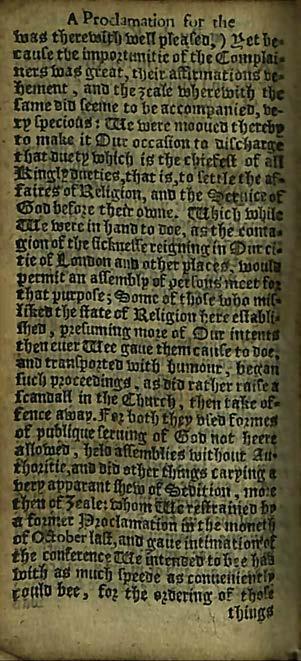 A Proclamation for the
was therewith well pleased.) Yet be-
cause the importunitie of the Complai-
ners was great, their affirmations ve-
hement, and the zeale wherewith the
same did seeme to be accompanied, ve-
ry specious: We were mooued thereby
to make it Our occasion to discharge
that duety which is the chiefest of all
Kingly dueties, that is, to settle the af-
faires of Religion, and the Seruice of
God before their owne. Which while
We were in hand to doe, as the conta-
gion of the sicknesse reigning in Our ci-
tie of London and other places, would
permit an assembly of persons meet for
that purpose; Some of those who mis-
liked the state of Religion here establi-
shed, presuming more of Our intents
then euer Wee gaue them cause to doe,
and transported with humour, began
such proceedings, as did rather raise a
scandall in the Church, then take of-
fence away. For both they vsed formes
of publique seruing of God not heere
allowed, held assemblies without Au-
thoritie, and did other things carying a
very apparant shew of Sedition, more
then of Zeale: whom We restrained by
a former Proclamation in the moneth
of October last, and gaue intimation of
the conference We intended to bee had
with as much speede as conueniently
could bee, for the ordering of those
things